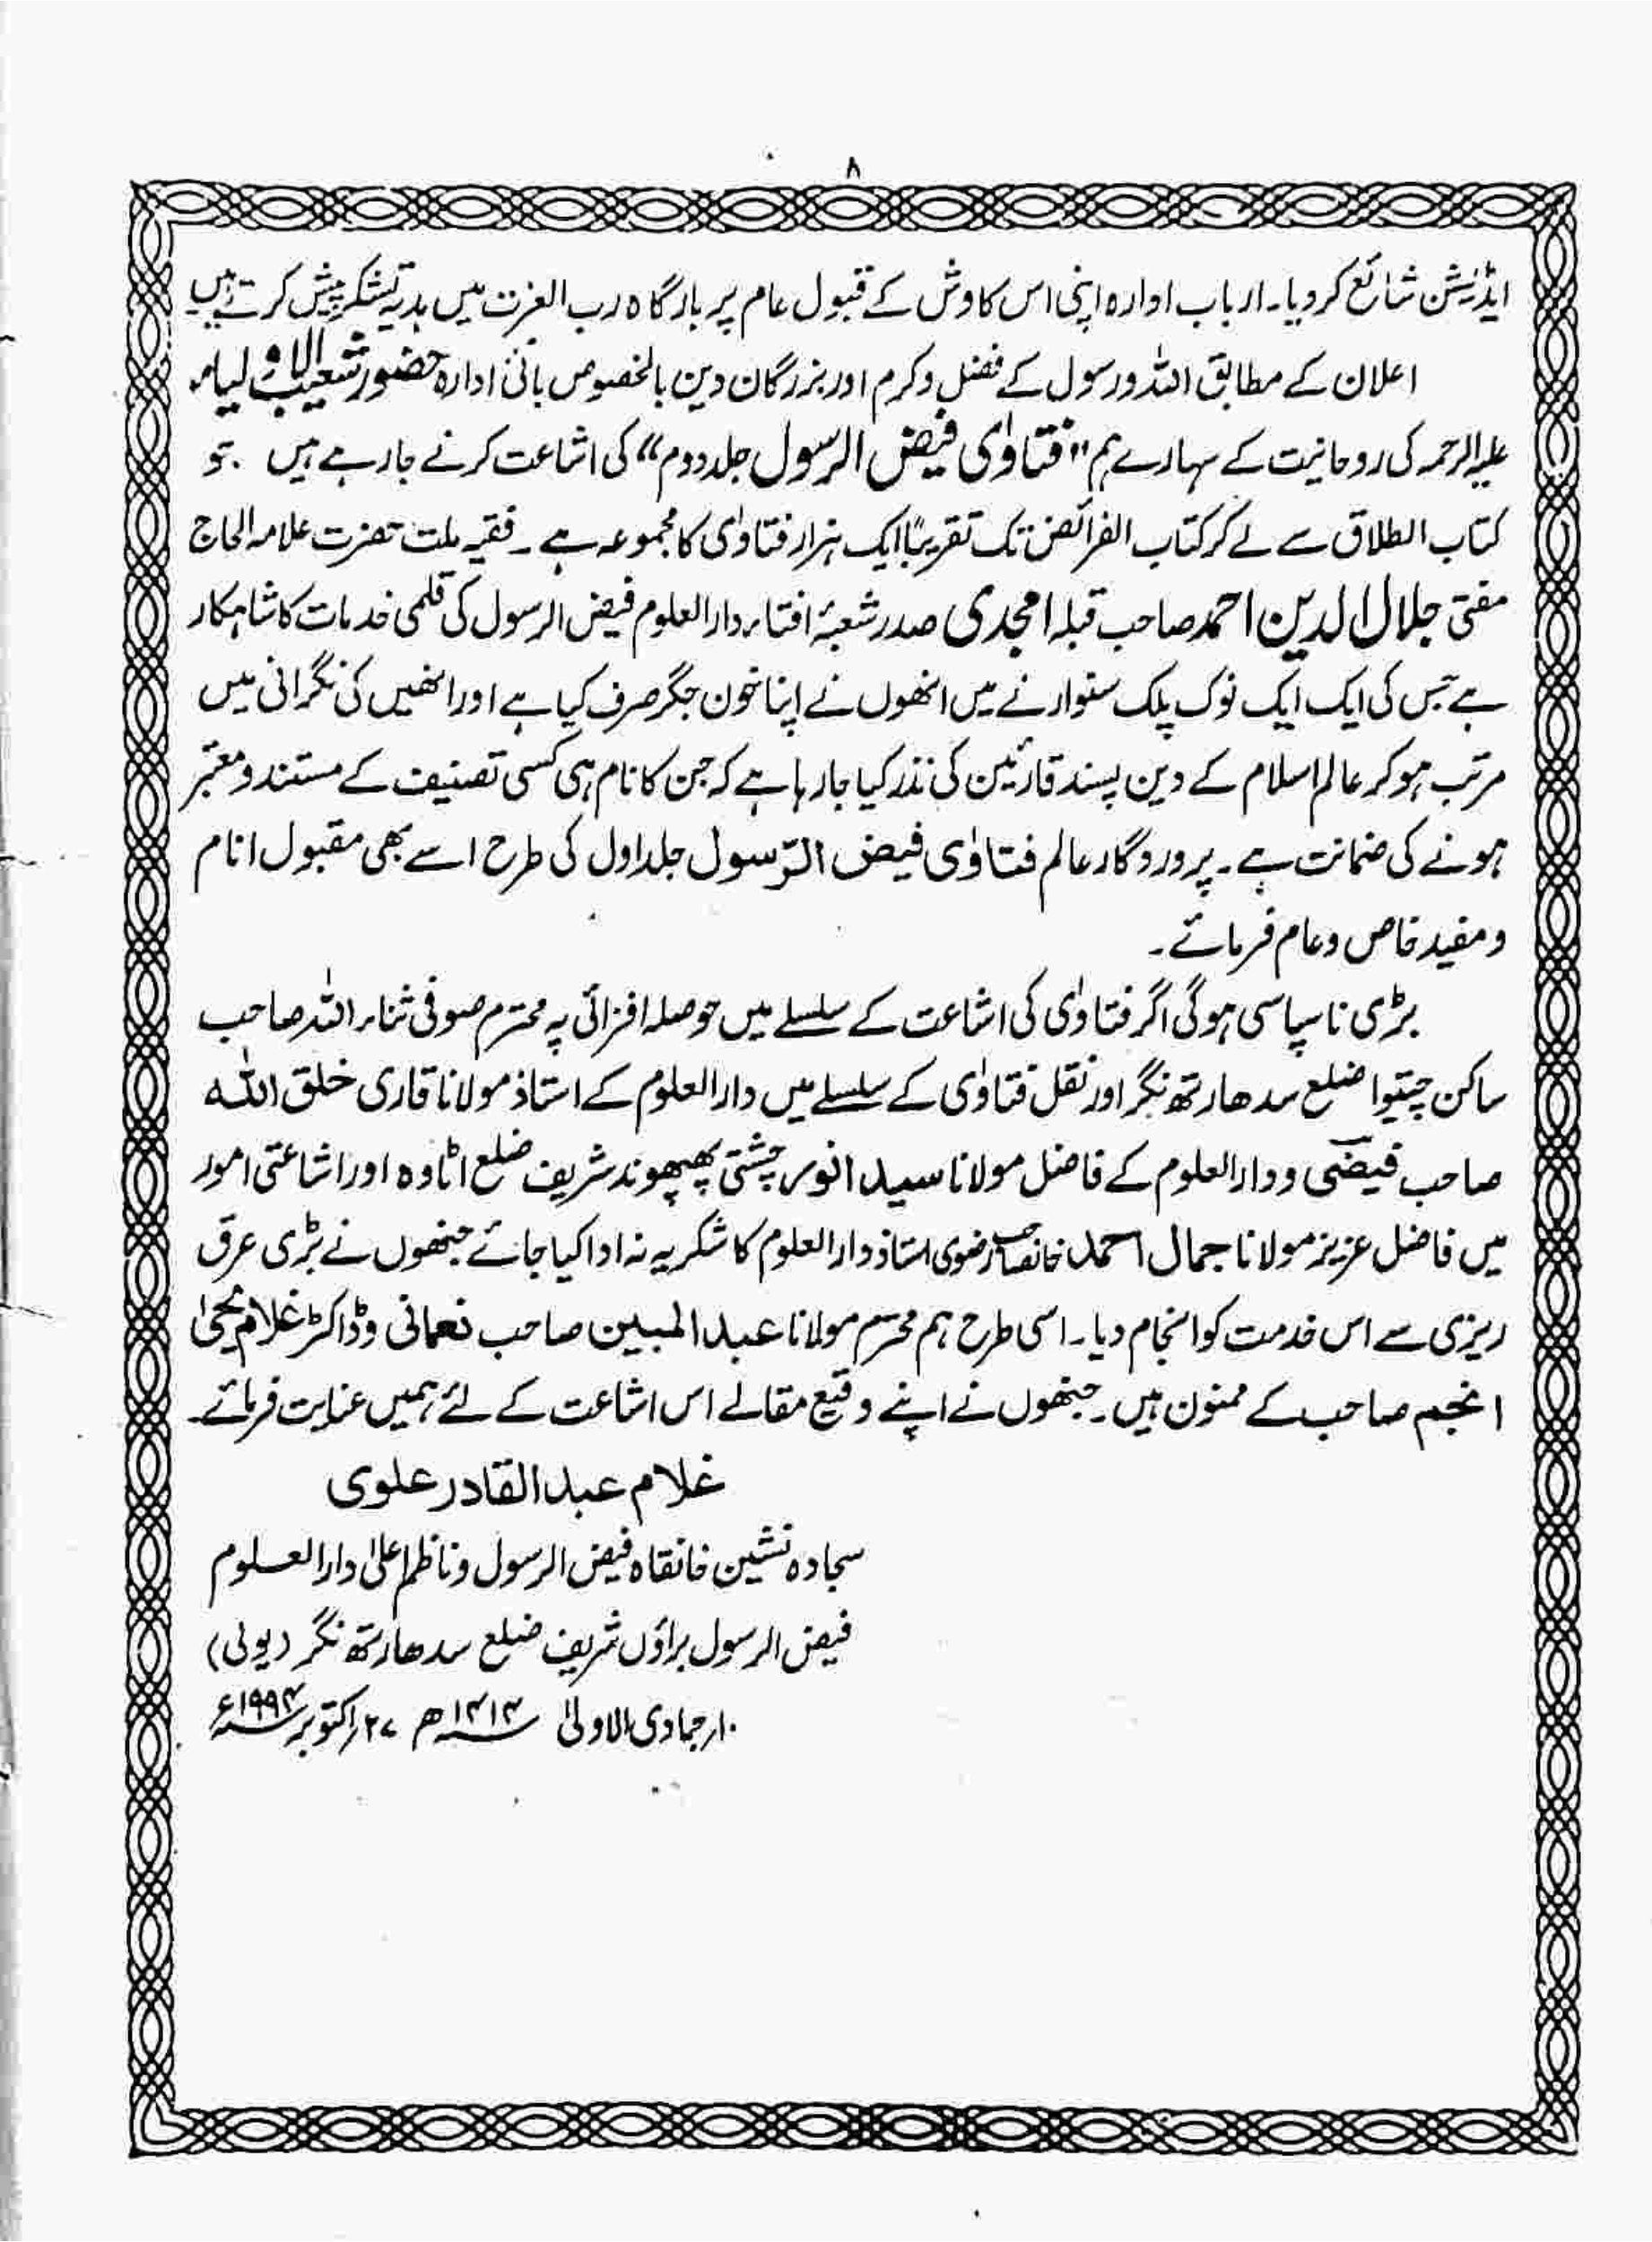 ۸
ایڈیشن شائع کردیا۔ ارباب ادارہ اپنی اس کاوش کے قبول عام پر بارگاہ رب العزت میں ہدیۂ تشکر پیش کرتے ہیں
اعلان کے مطابق اللہ ورسول کے فضل وکرم اور بزرگان دین بالخصوص بانیٔ ادارہ حضور شعیب الاولیاء
علیہ الرحمہ کی روحانیت کے سہارے ہم "فتاوٰی فیض الرسول جلد دوم" کی اشاعت کرنے جارہے ہیں ۔جو
کتاب الطلاق سے لے کر کتاب الفرائض تک تقریباً ایک ہزار فتاوٰی کا مجموعہ ہے ۔ فقیہ ملت حضرت علامہ الحاج
مفتی جلال الدین احمد صاحب قبلہ امجدی صدر شعبۂ افتاء دارالعلوم فیض الرسول کی قلمی خدمات کا شاہکار
ہے جس کی ایک ایک نوک پلک سنوارنے میں انھوں نے اپنا خون جگر صرف کیا ہے اور انھیں کی نگرانی میں
مرتب ہوکر عالم اسلام کے دین پسند قارئین کی نذر کیا جارہا ہے کہ جن کا نام ہی کسی تصنیف کے مستند و معتبر
ہونے کی ضمانت ہے ۔ پروردگار عالم فتاوٰی فیض الرّسول جلد اول کی طرح اسے بھی مقبول انام
و مفید خاص و عام فرمائے ۔
بڑی ناسپاسی ہوگی اگر فتاوٰی کی اشاعت کے سلسلے میں حوصلہ افزائی پہ محترم صوفی ثناء اللہ صاحب
ساکن چیتیوا ضلع سدھارتھ نگر اور نقل فتاوٰی کے سلسلے میں دارالعلوم کے استاذ مولانا قاری خلق اللہ
صاحب فیضی و دارالعلوم کے فاضل مولانا سید انور چشتی پھپھوند شریف ضلع اٹاوہ اور اشاعتی امور
میں فاضل عزیز مولانا جمال احمد خانصاحب رضوی استاذ دارالعلوم کا شکریہ نہ ادا کیا جائے جنھوں نے بڑی عرق
ریزی سے اس خدمت کو انجام دیا۔ اسی طرح ہم محترم مولانا عبد المبین صاحب نعمانی وڈاکٹر غلام یحیٰ
انجم صاحب کے ممنون ہیں ۔ جنھوں نے اپنے وقیع مقالے اس اشاعت کے لئے ہمیں عنایت فرمائے ۔
غلام عبد القادر علوی
سجادہ نشین خانقاہ فیض الرسول و ناظم اعلیٰ دارالعلوم
فیض الرسول براؤں شریف ضلع سدھارتھ نگر (یوپی)
۱۰؍جمادی الاولیٰ ۱۴۱۴ھ ۲۷؍اکتوبر ۱۹۹۳ء